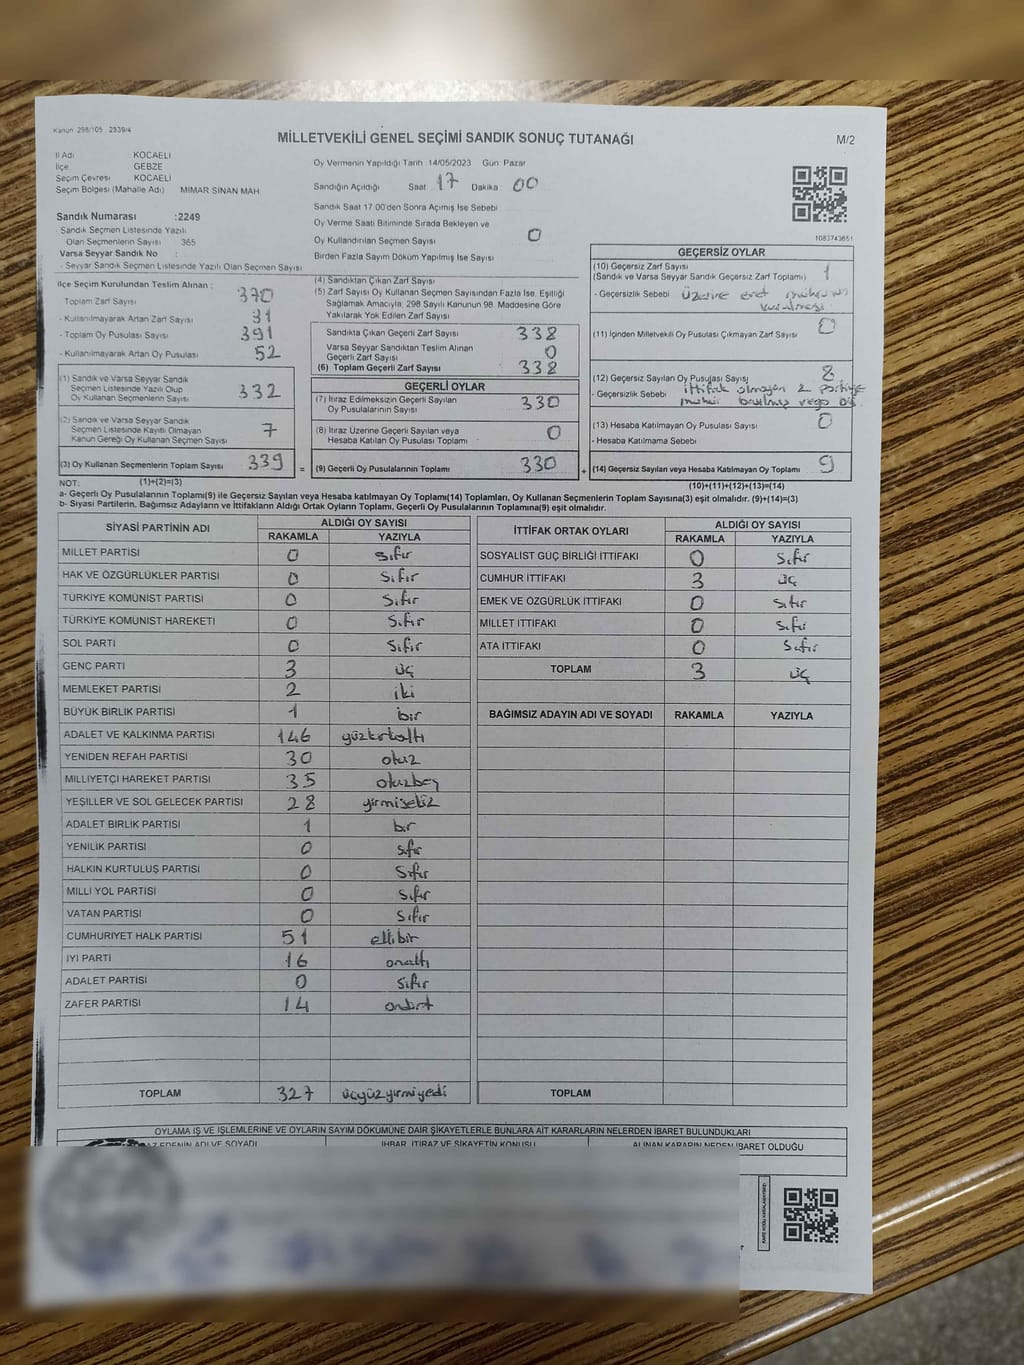 Kanun 298/105 2839/4
MİLLETVEKİLİ GENEL SEÇİMİ SANDIK SONUÇ TUTANAĞI
M/2
İl Adı KOCAELİ
İlçe GEBZE
Seçim Çevresi KOCAELİ
Seçim Bölgesi (Mahalle Adı) MİMAR SİNAN MAH.
Sandık Numarası :2249
- Sandık Seçmen Listesinde Yazılı
Olan Seçmenlerin Sayısı 365
Varsa Seyyar Sandık No
- Seyyar Sandık Seçmen Listesinde Yazılı Olan Seçmen Sayısı
Oy Vermenin Yapıldığı Tarih :14/05/2023 Gün: Pazar
Sandığın Açıldığı Saat 17 Dakika 00
Sandık Saat 17.00'den Sonra Açılmış İse Sebebi
Oy Verme Saati Bitiminde Sırada Bekleyen ve
Oy Kullandırılan Seçmen Sayısı 0
Birden Fazla Sayım Döküm Yapılmış İse Sayısı
1083743651
İlçe Seçim Kurulundan Teslim Alınan :
Toplam Zarf Sayısı 370
- Kullanılmayarak Artan Zarf Sayısı 31
- Toplam Oy Pusulası 391
- Kullanılmayarak Artan Oy Pusulası 52
(1) Sandık ve Varsa Seyyar Sandık
Seçmen Listesinde Yazılı Olup
Oy Kullanan Seçmenlerin Sayısı 332
(2) Sandık ve Varsa Seyyar Sandık
Seçmen Listesinde Kayıtlı Olmayan
Kanun Gereği Oy Kullanan Seçmen Sayısı 7
(3) Oy Kullanan Seçmenlerin Toplam Sayısı 339 =
(4) Sandıktan Çıkan Zarf Sayısı
(5) Zarf Sayısı Oy Kullanan Seçmen Sayısından Fazla İse, Eşitliği
Sağlamak Amacıyla; 298 Sayılı Kanunun 98. Maddesine Göre
Yakılarak Yok Edilen Zarf Sayısı
Sandıkta Çıkan Geçerli Zarf Sayısı 338
Varsa Seyyar Sandıktan Teslim Alınan
Geçerli Zarf Sayısı 0
(6) Toplam Geçerli Zarf Sayısı 338
GEÇERLİ OYLAR
(7) İtiraz Edilmeksizin Geçerli Sayılan
Oy Pusulalarının Sayısı 330
(8) İtiraz Üzerine Geçerli Sayılan veya
Hesaba Katılan Oy Pusulası Toplamı 0
(9) Geçerli Oy Pusulalarının Toplamı 330 +
GEÇERSİZ OYLAR
(10) Geçersiz Zarf Sayısı
(Sandık ve Varsa Seyyar Sandık Geçersiz Zarf Toplamı) 1
- Geçersizlik Sebebi üzerine evet
(11) İçinden Milletvekili Oy Pusulası Çıkmayan Zarf Sayısı 0
(12) Geçersiz Sayılan Oy Pusulası Sayısı 8
- Geçersizlik Sebebi ittifak olmayan 2 partiye
mühür
(13) Hesaba Katılmayan Oy Pusulası Sayısı 0
- Hesaba Katılmama Sebebi
(14) Geçersiz Sayılan veya Hesaba Katılmayan Oy Toplamı 9
NOT: (1)+(2)=(3) (10)+(11)+(12)+(13)=(14)
a- Geçerli Oy Pusulalarının Toplamı(9) ile Geçersiz Sayılan veya Hesaba katılmayan Oy Toplamı(14) Toplamları, Oy Kullanan Seçmenlerin Toplam Sayısına(3) eşit olmalıdır. (9)+(14)=(3)
b- Siyasi Partilerin, Bağımsız Adayların ve İttifakların Aldığı Ortak Oyların Toplamı, Geçerli Oy Pusulalarının Toplamına(9) eşit olmalıdır.
SİYASİ PARTİNİN ADI ALDIĞI OY SAYISI
RAKAMLA YAZIYLA
MİLLET PARTİSİ 0 sıfır
HAK VE ÖZGÜRLÜKLER PARTİSİ 0 sıfır
TÜRKİYE KOMÜNİST PARTİSİ 0 sıfır
TÜRKİYE KOMÜNİST HAREKETİ 0 sıfır
SOL PARTİ 0 sıfır
GENÇ PARTİ 3 üç
MEMLEKET PARTİSİ 2 iki
BÜYÜK BİRLİK PARTİSİ 1 bir
ADALET VE KALKINMA PARTİSİ 146 yüzkırkaltı
YENİDEN REFAH PARTİSİ 30 otuz
MİLLİYETÇİ HAREKET PARTİSİ 35 otuzbeş
YEŞİLLER VE SOL GELECEK PARTİSİ 28 yirmisekiz
ADALET BİRLİK PARTİSİ 1 bir
YENİLİK PARTİSİ 0 sıfır
HALKIN KURTULUŞ PARTİSİ 0 sıfır
MİLLİ YOL PARTİSİ 0 sıfır
VATAN PARTİSİ 0 sıfır
CUMHURİYET HALK PARTİSİ 51 ellibir
İYİ PARTİ 16 onaltı
ADALET PARTİSİ 0 sıfır
ZAFER PARTİSİ 14 ondört
TOPLAM 327 üçyüzyirmiyedi
İTTİFAK ORTAK OYLARI ALDIĞI OY SAYISI
RAKAMLA YAZIYLA
SOSYALİST GÜÇ BİRLİĞİ İTTİFAKI 0 sıfır
CUMHUR İTTİFAKI 3 üç
EMEK VE ÖZGÜRLÜK İTTİFAKI 0 sıfır
MİLLET İTTİFAKI 0 sıfır
ATA İTTİFAKI 0 sıfır
TOPLAM 3 üç
BAĞIMSIZ ADAYIN ADI VE SOYADI RAKAMLA YAZIYLA
TOPLAM
OYLAMA İŞ VE İŞLEMLERİNE VE OYLARIN SAYIM DÖKÜMÜNE DAİR ŞİKAYETLERLE BUNLARA AİT KARARLARIN NELERDEN İBARET BULUNDUKLARI
EDENİN ADI VE SOYADI İHBAR, İTİRAZ VE ŞİKAYETİN KONUSU ALINAN KARARIN NEDEN İBARET OLDUĞU